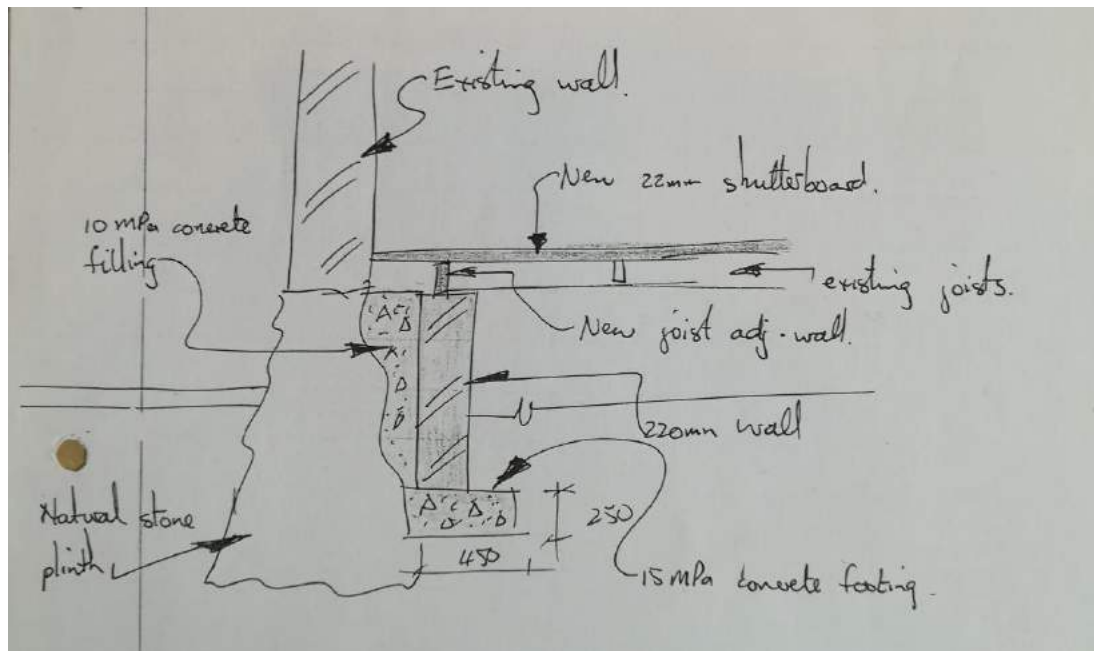 Existing wall.
New 22mm shutterboard.
10 mPa concrete
filling
existing joists.
New joist adj. wall.
220mm wall
Natural stone
plinth
250
450
15 mPa concrete footing.